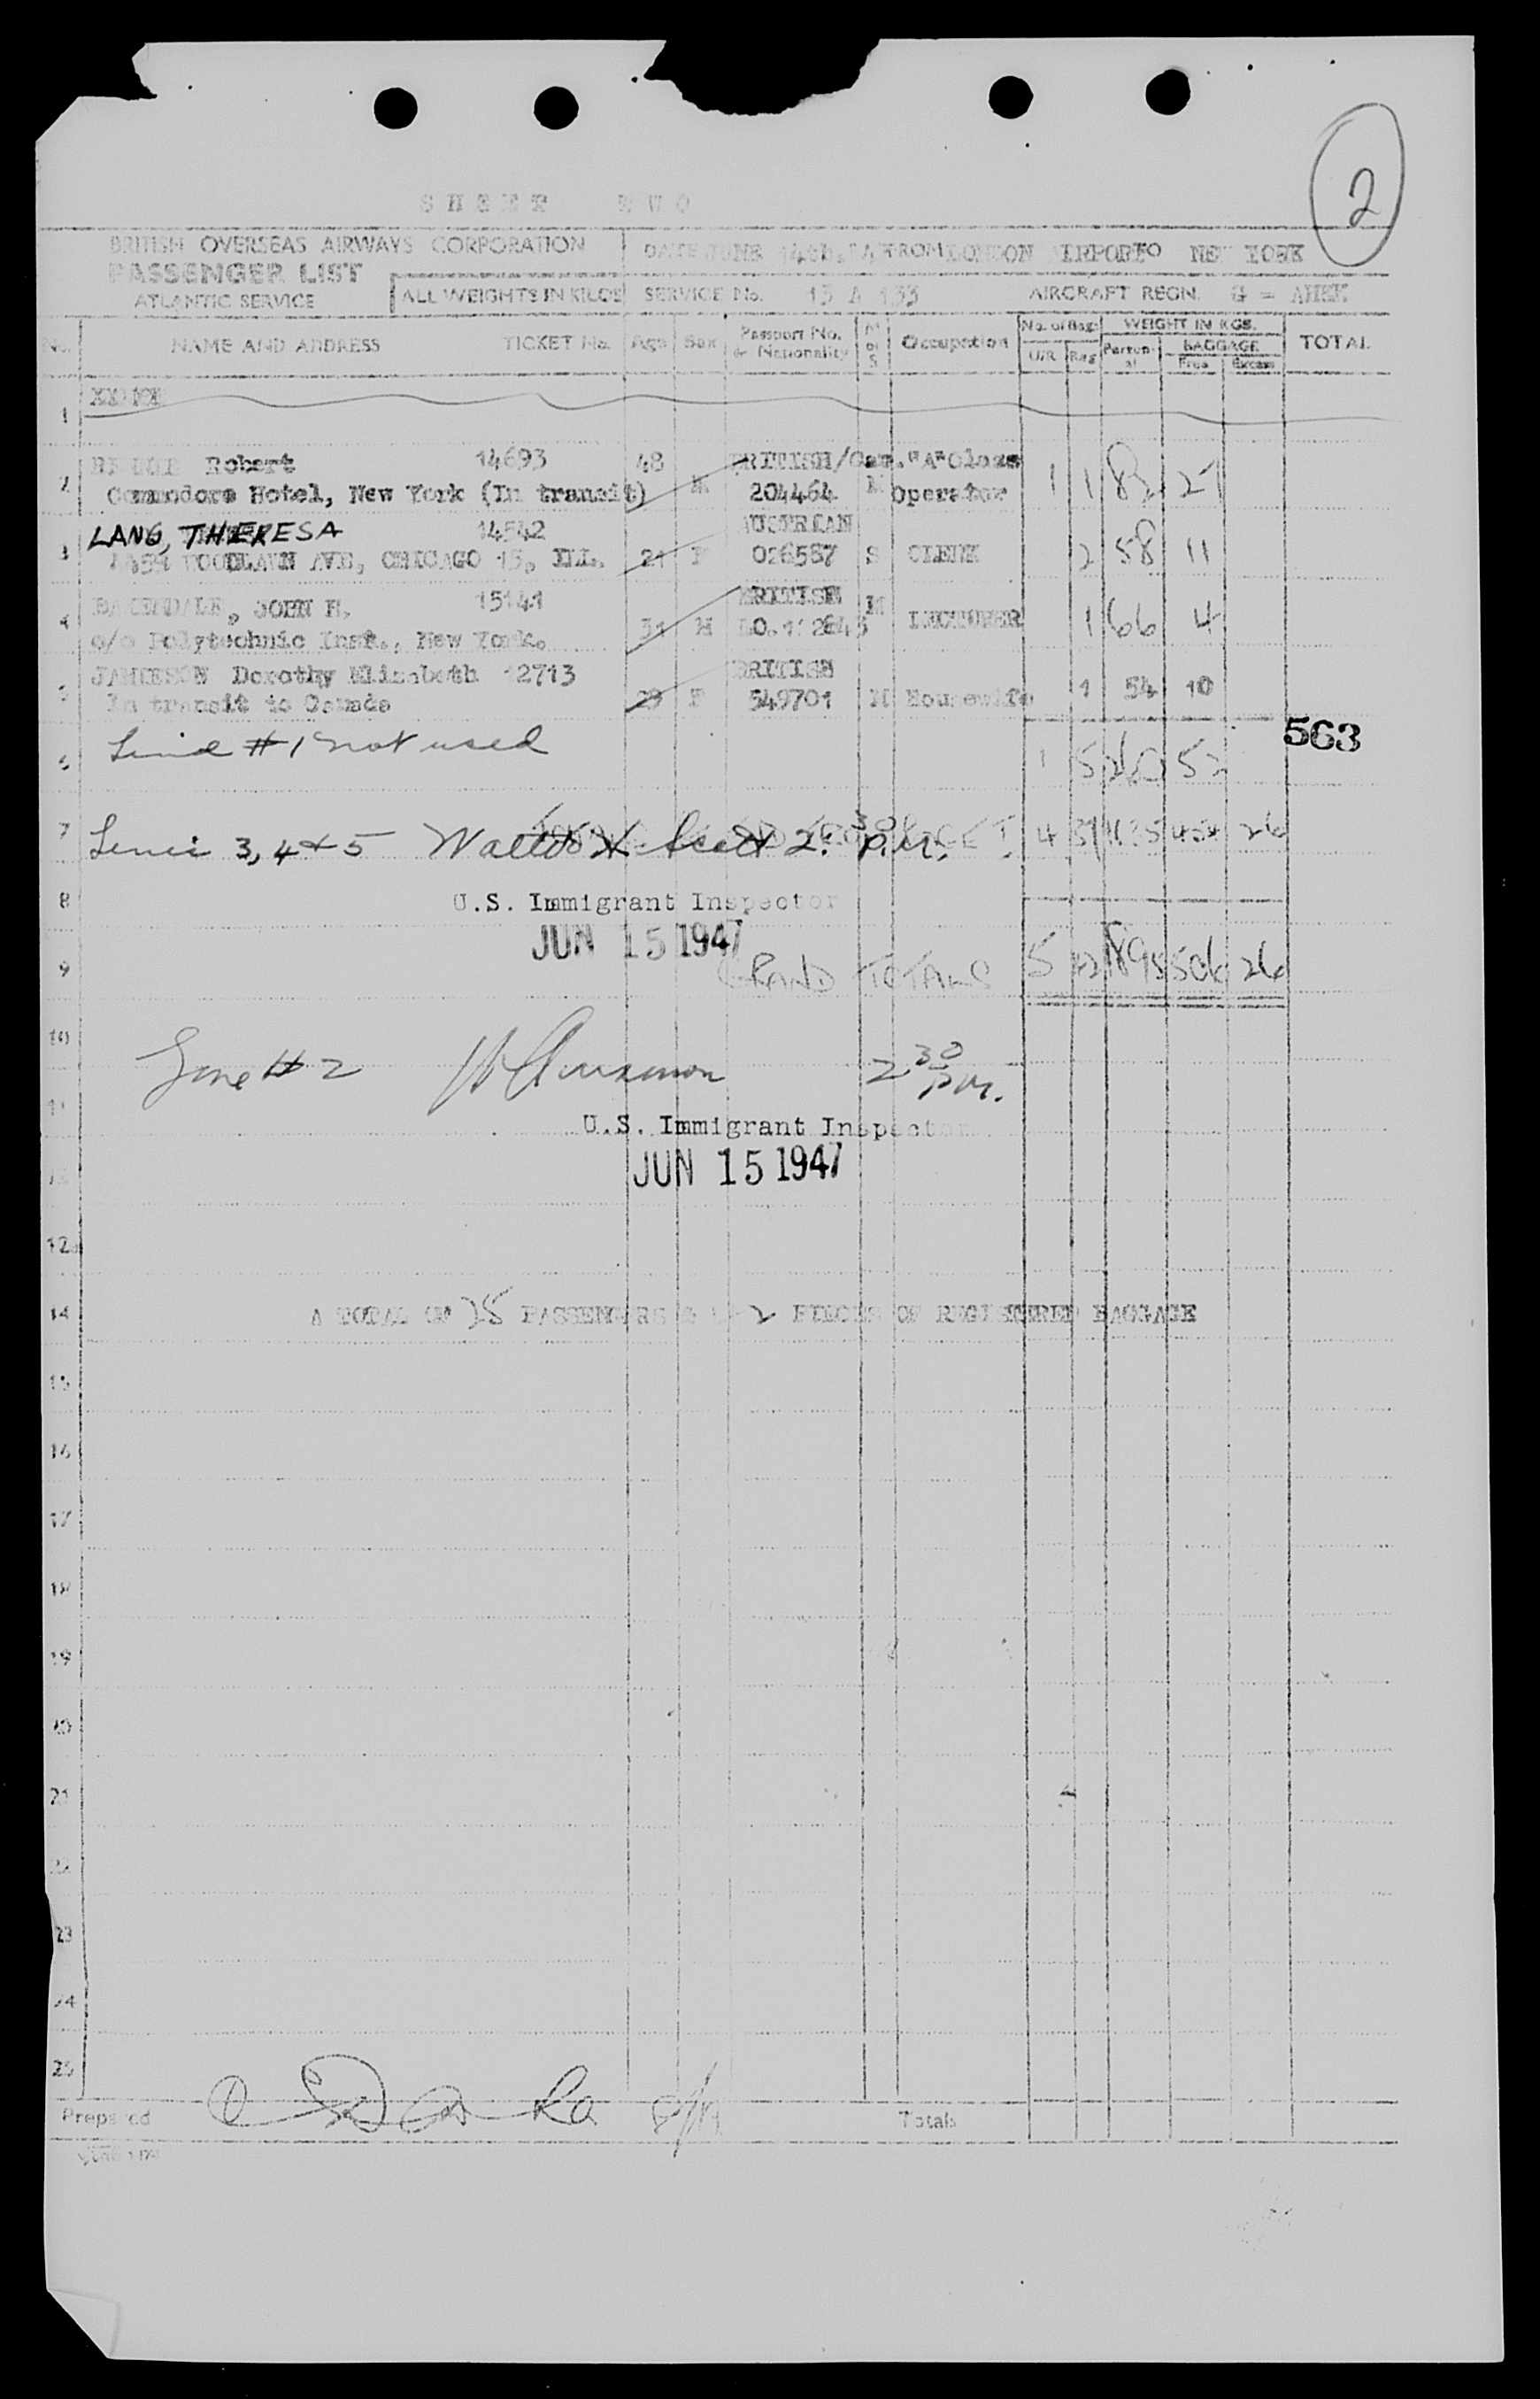 2
SHEET TWO
BRITISH OVERSEAS AIRWAYS CORPORATION
PASSENGER LIST
ATLANTIC SERVICE
ALL WEIGHTS IN KILOS
DATE JUNE 14th. FROM LONDON AIRPORT TO NEW YORK
SERVICE No. 15 A 133 AIRCRAFT REGN. G =
No. NAME AND ADDRESS TICKET No. Age Sex Passport No. & Nationality M or S Occupation No. of Bags U/R Reg WEIGHT IN KGS. Personal BAGGAGE Free Excess TOTAL
1
2 Robert 14693 48 BRITISH/Can. "A" Class 1 1 82 27
Commodore Hotel, New York (In transit) M 204464 M Operator
3 LANG, THERESA 14542 AUSTRIAN 2 58 11
WOODLAWN AVE, CHICAGO 15, ILL. 21 F 026587 S CLERK
4 JOHN H. 15141 31 M BRITISH M LECTURER 1 66 4
c/o Polytechnic Inst., New York.
5 JAMIESON Dorothy Elizabeth 12713 BRITISH
In transit to Canada 29 F 549701 M Housewife 1 54 10
563
6 Line #1 not used 1 5 260 52
7 Lines 3, 4 & 5 Walter H. Scott 2:30 P.M. 4 26
8 U.S. Immigrant Inspector
JUN 15 1947
9 GRAND TOTALS 5 42 1895 506 26
10 Line #2 2 30 P.M.
11 U.S. Immigrant Inspector
JUN 15 1947
12
14 A TOTAL OF 25 PASSENGERS 2 PIECES OF REGISTERED BAGGAGE
15
16
17
18
19
20
21
22
23
24
25
Prepared Totals